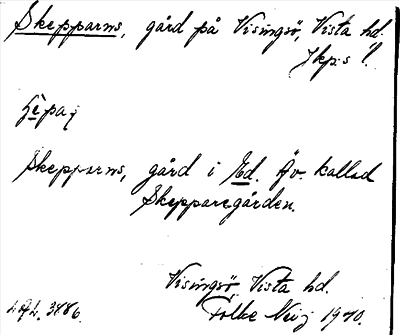 Skepparns, gård på Visingsö, Vista hd.
Jkp:s l.
Skepparns, gård i Ed. Äv. kallad
Skepparegården.
Visingsö, Vista hd.
Folke Neij 1970.